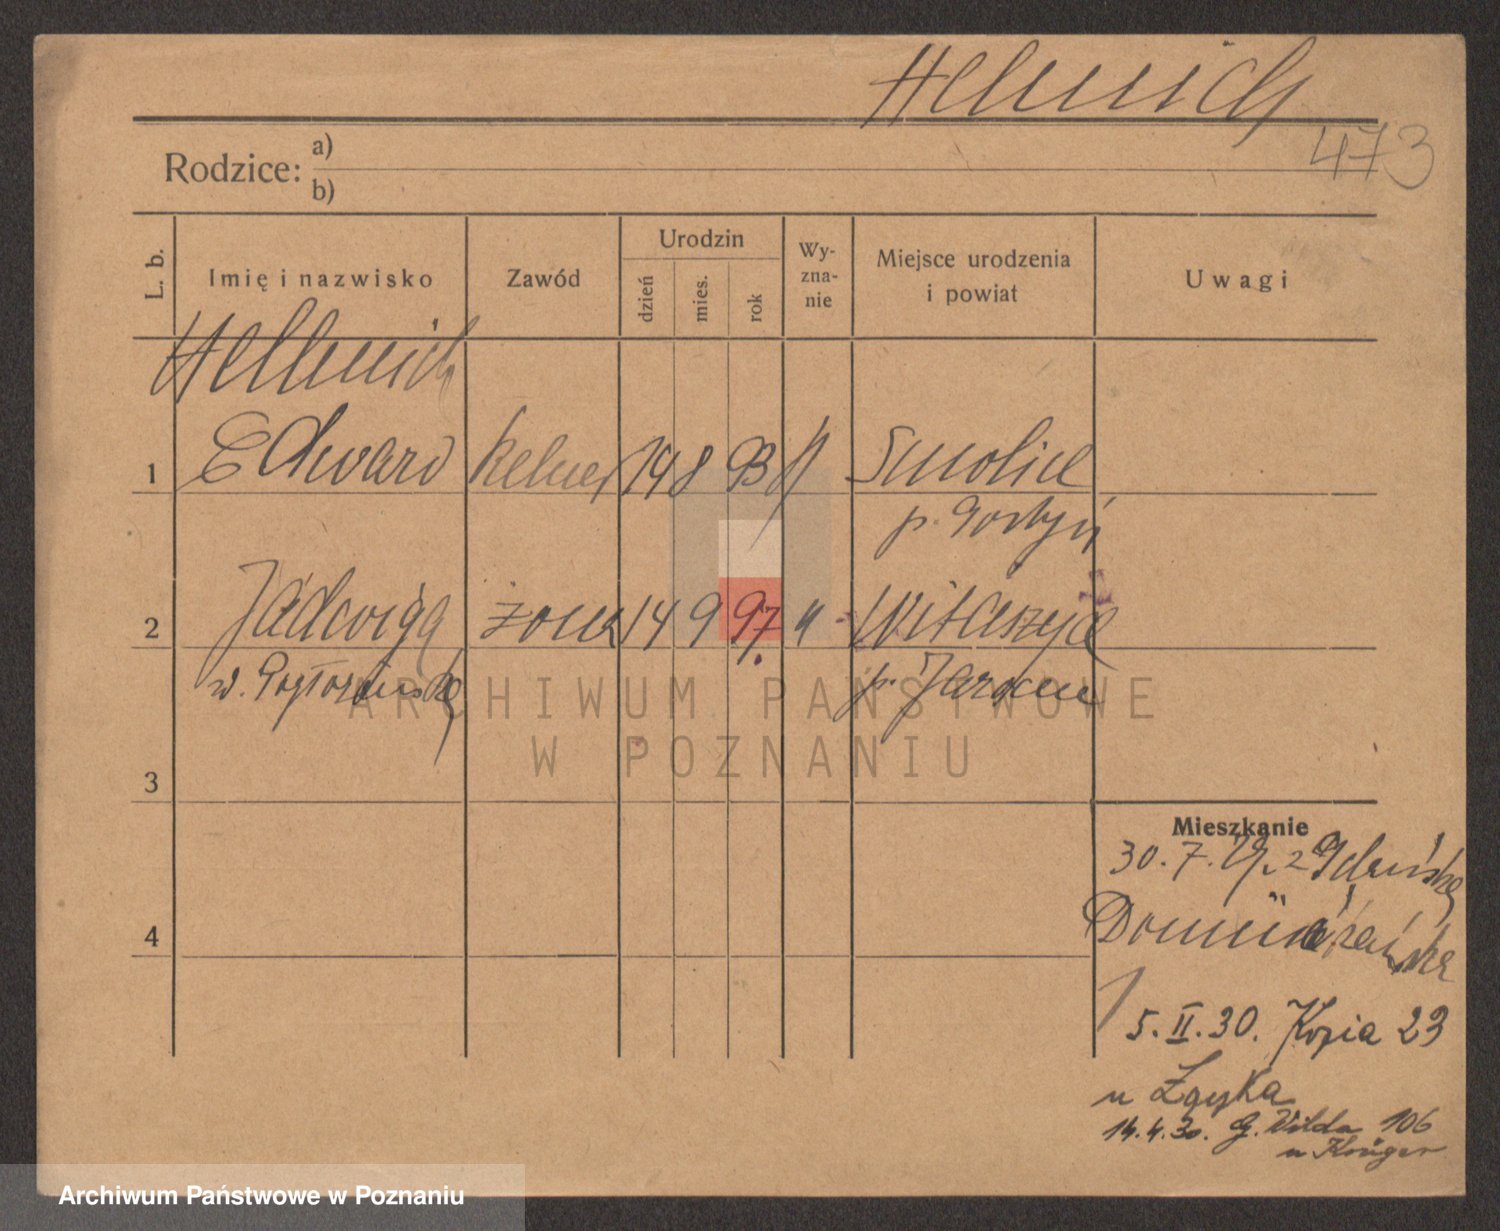 Helmich
473
Rodzice: a)
b)
L. b. Imię i nazwisko Zawód Urodzin dzień mies. rok Wy-zna-nie Miejsce urodzenia i powiat Uwagi
Hellmich
1 Edward kelner 14 8 93 Smolice
p. Gostyń
2 Jadwiga żona 14 9 97 " Witaszyce
p. Jarocin
ARCHIWUM PAŃSTWOWE
W POZNANIU
3
Mieszkanie
30. 7. z Gdańska
4
Dominikańska
5. II. 30. Kopia 23
u
14. 4. 30. G. Wilda 106
u Krüger
Archiwum Państwowe w Poznaniu